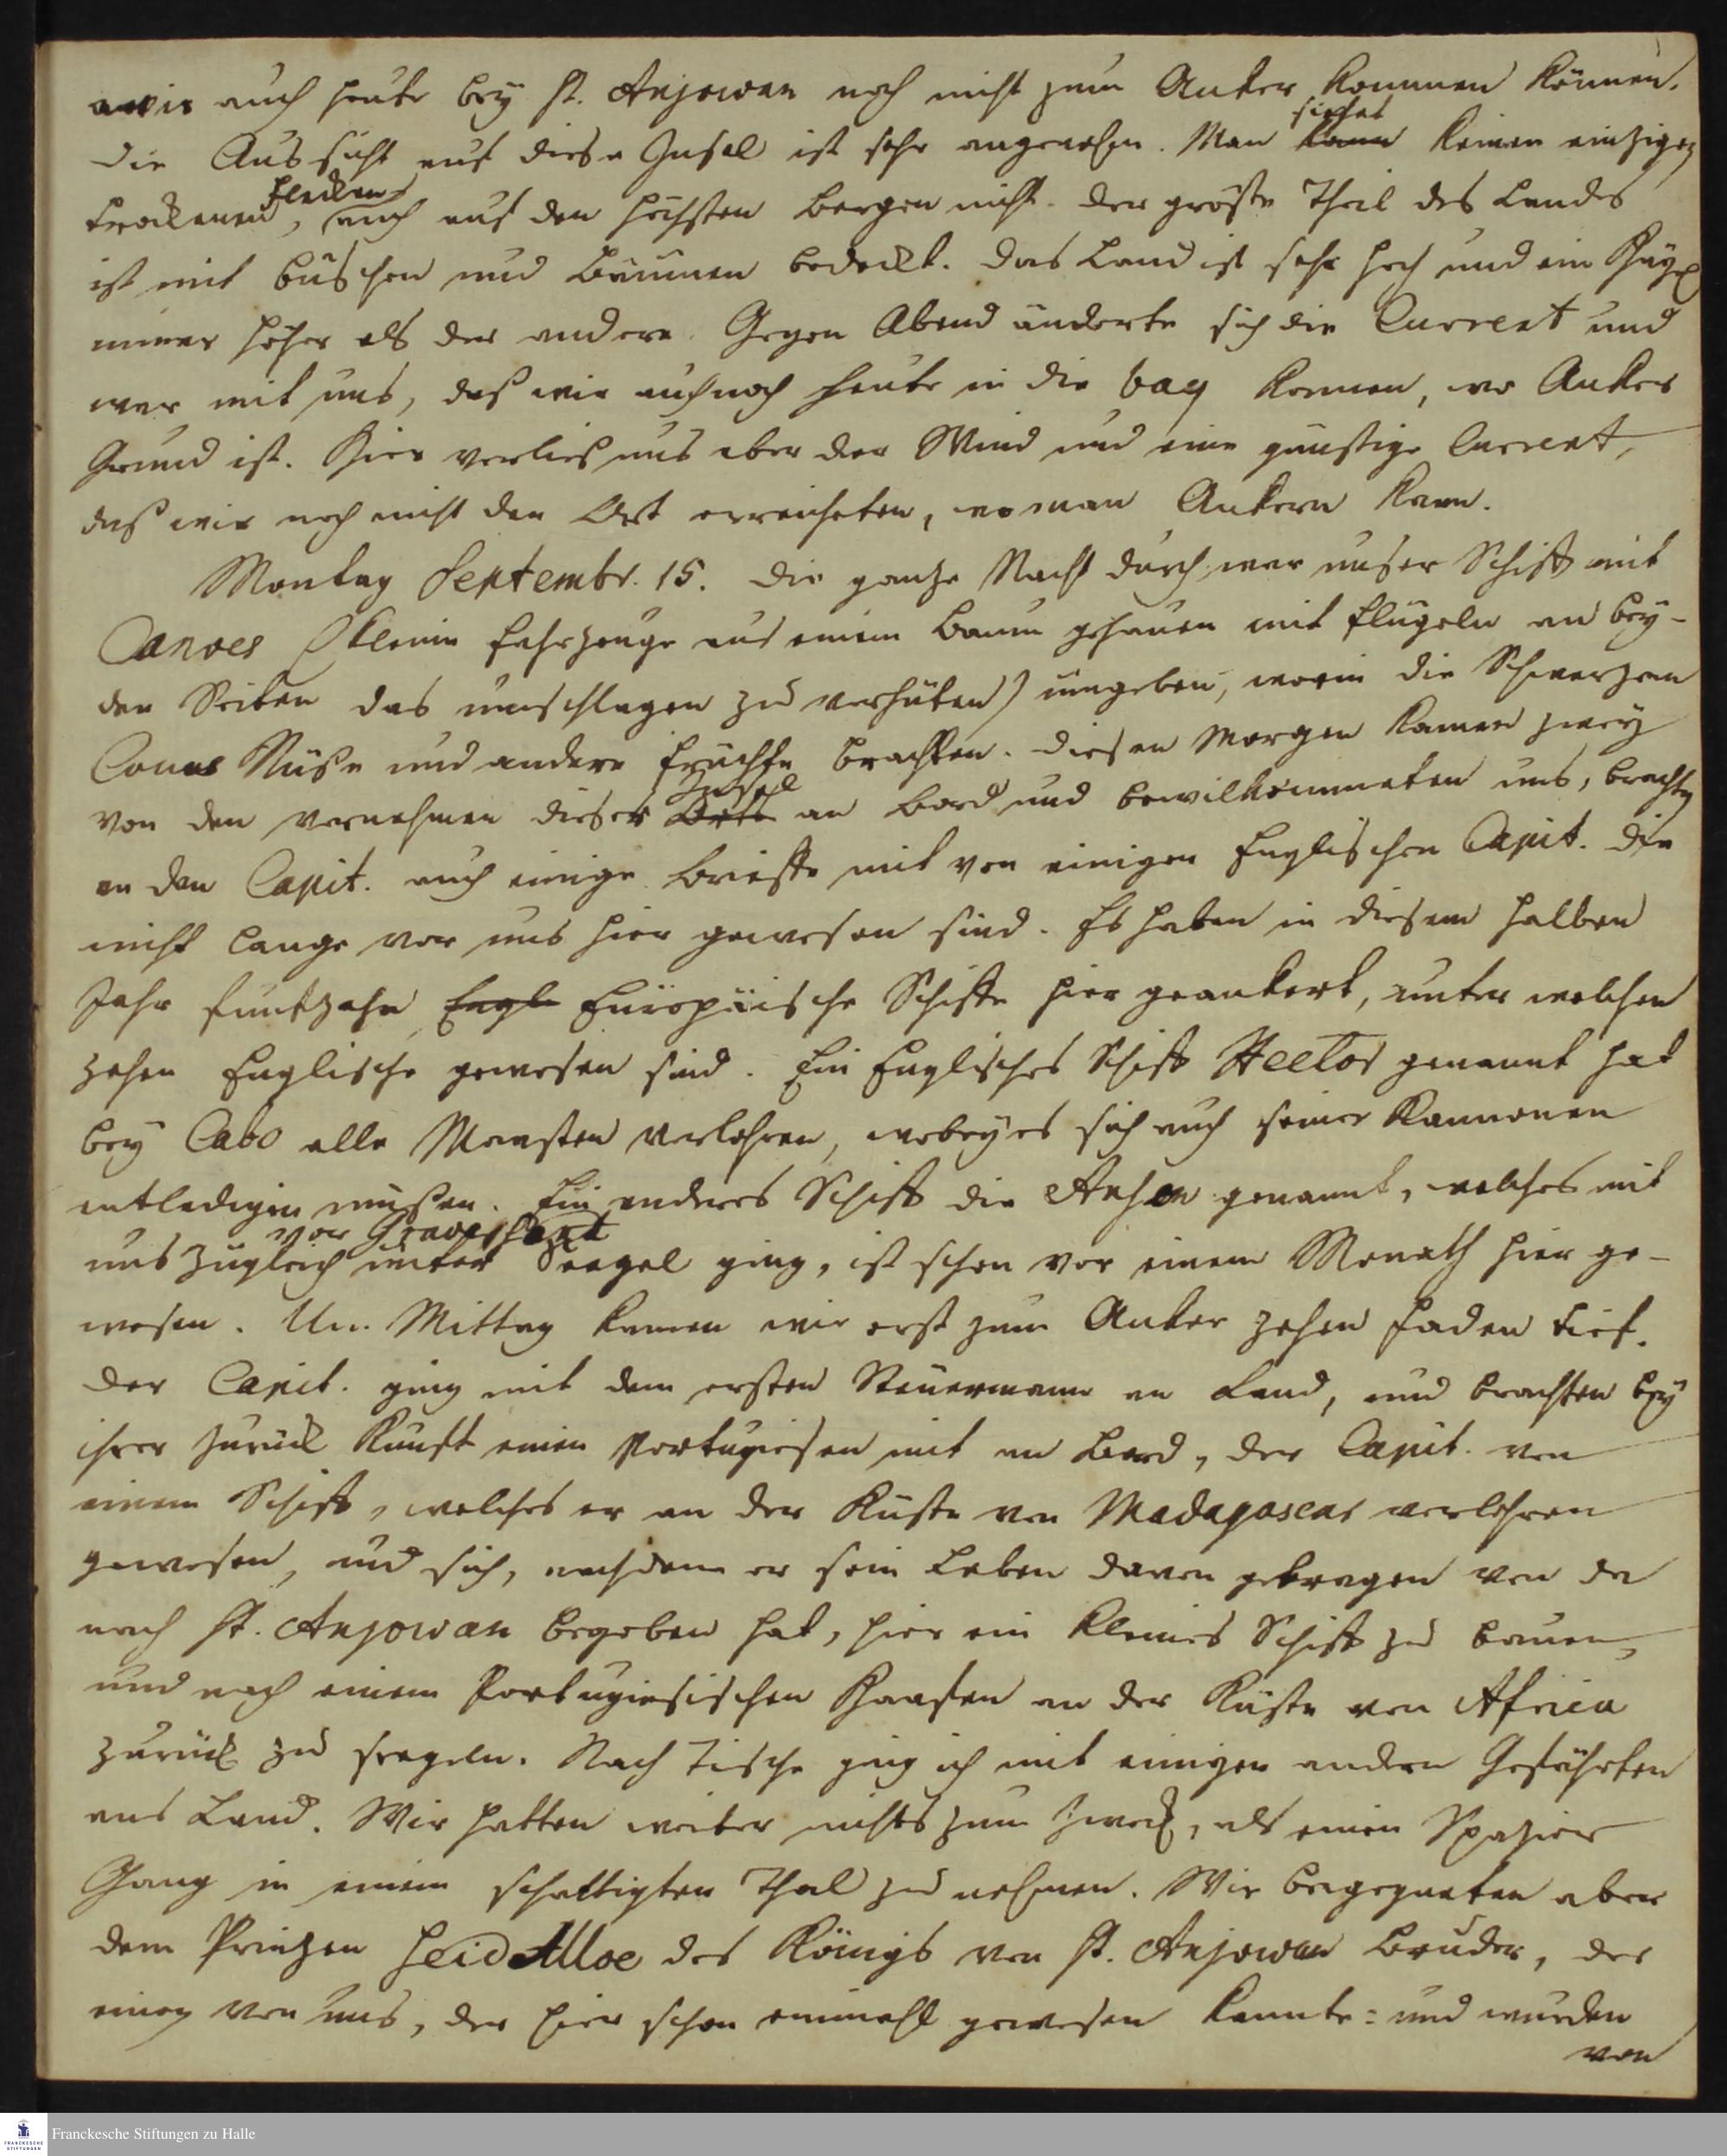 wir auch heute bey St. Anjowan noch nicht zum Anker kommen können.
Die Aussicht auf diese Insul ist sehr angenehm. Man siehet kann keinen einzigen
trockenen Flecken, auch auf den höchsten bergen nicht. Der gröste Theil des Landes
ist mit büschen und bäumen bedeckt. Das Land ist sehr hoch und ein Hügel
immer höher als der andere. Gegen Abend änderte sich die Current und
war mit uns, daß wir auch noch heute in die bay kamen, wo Anker
Grund ist. Hier verließ uns aber der Wind und eine günstige Current,
daß wir noch nicht den Ort erreicheten, wo man Ankern kann.
Montag Septembr. 15. Die ganze Nacht durch war unser Schiff mit
Canoes (kleine fahrzeuge aus einem baum gehauen mit flügeln an bey-
den Seiten das umschlagen zu verhüten) umgeben, worin die Schwarzen
Cocus Nüße und andere früchte brachten. Diesen Morgen kamen zwey
von den vornehmen dieser Insel Orts an bord und bewillkommeten uns, brachten
an den Capit. auch einige brieffe mit von einigen Englischen Capit. die
nicht lange vor uns hier gewesen sind. Es haben in diesem halben
Jahr funfzehn Engl. Europäische Schiffe hier geankert, unter welchen
zehen Englische gewesen sind. Ein Englisches Schiff Hector genannt hat
bey Cabo alle Masten verlohren, wobey es sich auch seiner Kannonen
entledigen müßen. Ein anderes Schiff die Anson genannt, welches mit
uns zugleich vor Gravesend unter Seegel ging, ist schon vor einem Monath hier ge-
wesen. Um Mittag kamen wir erst zum Anker zehen faden tief.
Der Capit. ging mit dem ersten Steuermann an Land, und brachten bey
ihrer Zurück Kunft einen Portugiesen mit an bord, der Capit. von
einem Schiff, welches er an der Küste von Madagascar verlohren
gewesen, und sich, nachdem er sein Leben davon getragen von da
nach St. Anjowan begeben hat, hier ein kleines Schiff zu bauen,
und nach einem Portugiesischen Haafen an der Küste von Africa
zurück zu seegeln. Nach Tische ging ich mit einigen andern Gefährten
ans Land. Wir hatten weiter nichts zum Zweck, als einen Spazier
Gang in einem schattigten Thal zu nehmen. Wir begegneten aber
dem Prinzen Seid Alloe des Königs von St. Anjowan bruder, der
einen von uns, der hier schon einmahl gewesen kannte: und wurden
von
Franckesche Stiftungen zu Halle
FRANCKESCHE STIFTUNGEN